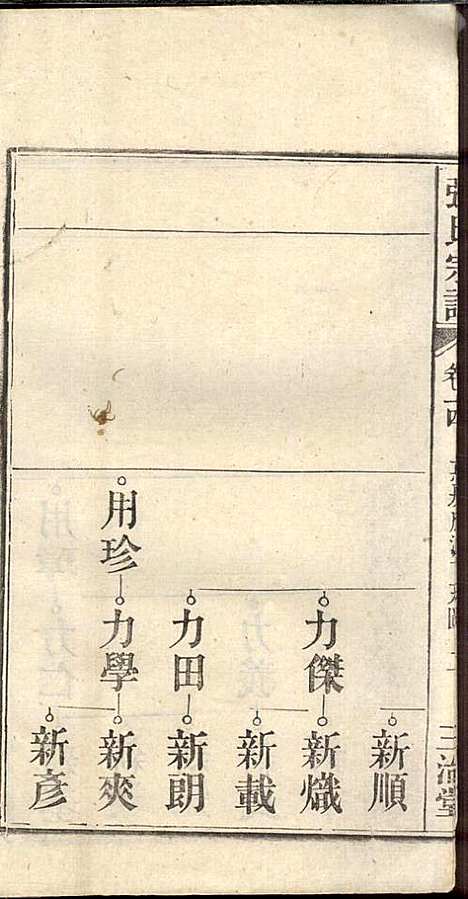 張氏宗譜
卷十四
新順
力傑
新熾
新載
力田
新朗
用珍
力學
新爽
新彥